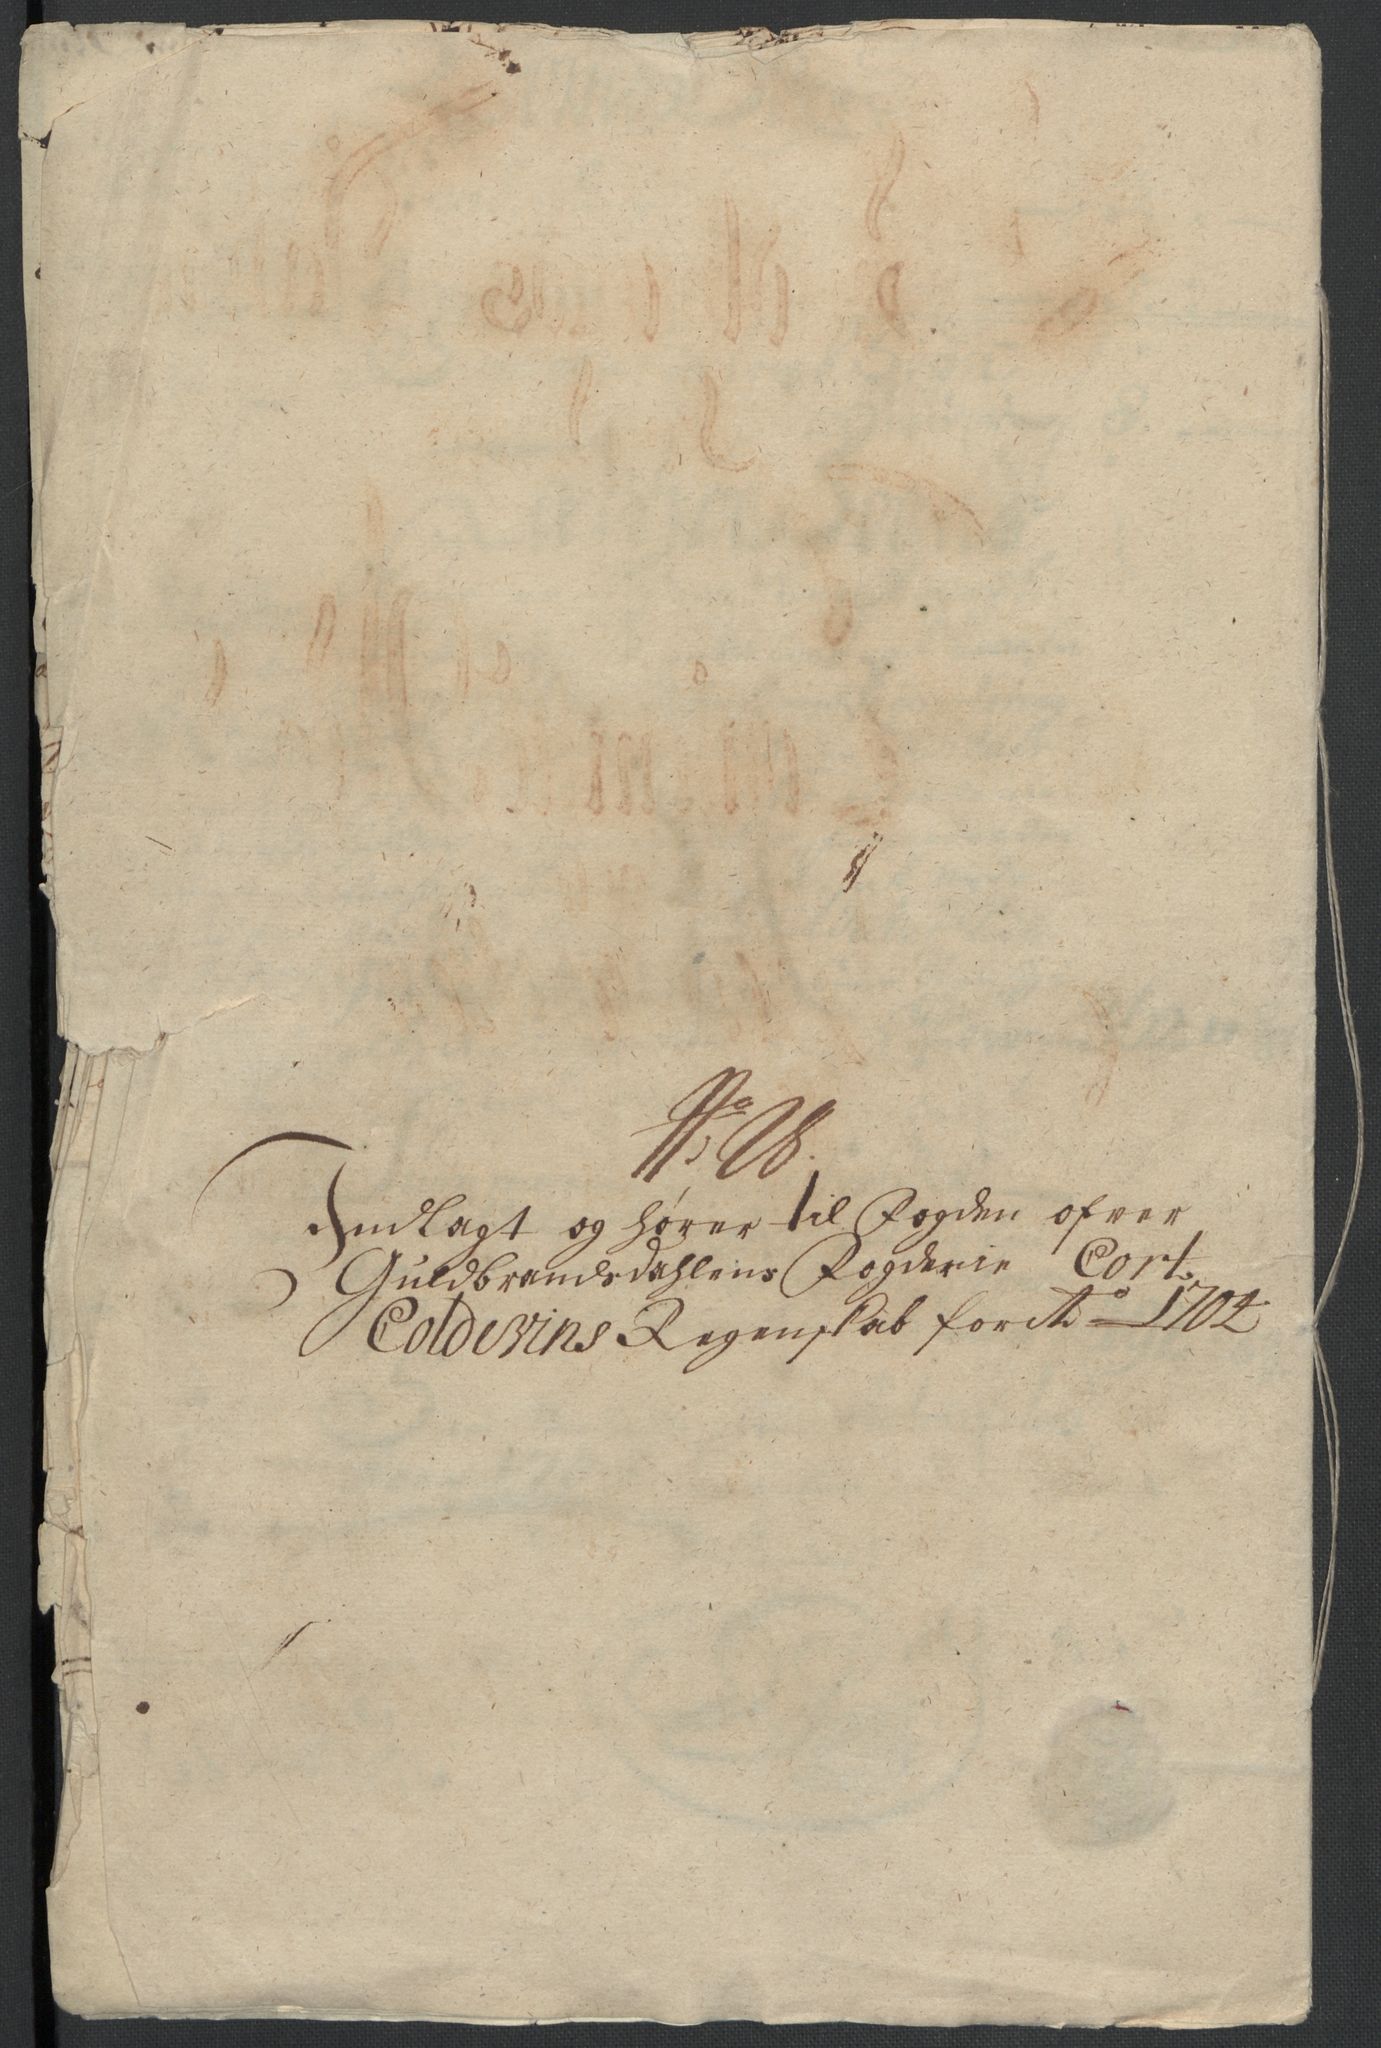 No
Indlagt og hører til Fogden ofver
Guldbrandsdahlens Fogderie Cort.
Colderins Regenskab for Ao 1704